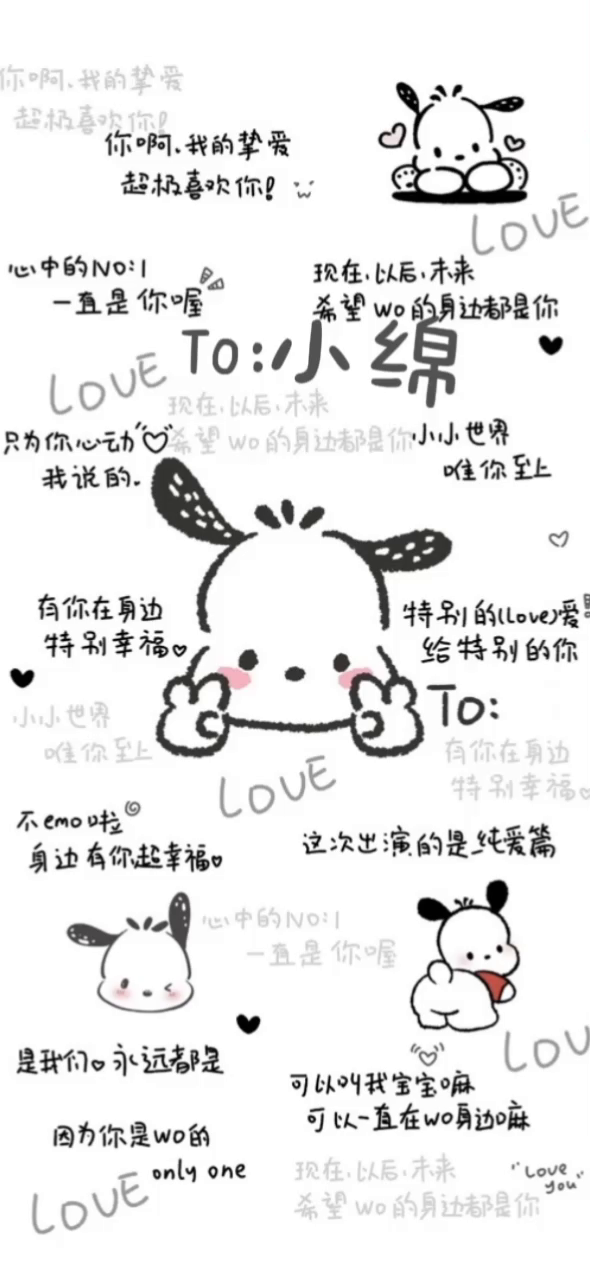 你啊、我的挚爱
超极喜欢你!
你啊、我的挚爱
超极喜欢你!
LOVE
心中的NO:1
一直是你喔
现在、以后、未来
希望wo的身边都是你
To:小绵
LOVE
现在、以后、未来
希望wo的身边都是你
只为你心动
我说的.
小小世界
唯你至上
有你在身边
特别幸福
特别的(Love)爱
给特别的你
To:
小小世界
唯你至上
有你在身边
特别幸福
LOVE
不emo啦
身边有你超幸福
这次出演的是纯爱篇
心中的NO:1
一直是你喔
是我们 永远都是
LOV
可以叫我宝宝嘛
可以一直在wo身边嘛
因为你是wo的
only one
现在、以后、未来
希望wo的身边都是你
Love
you
LOVE